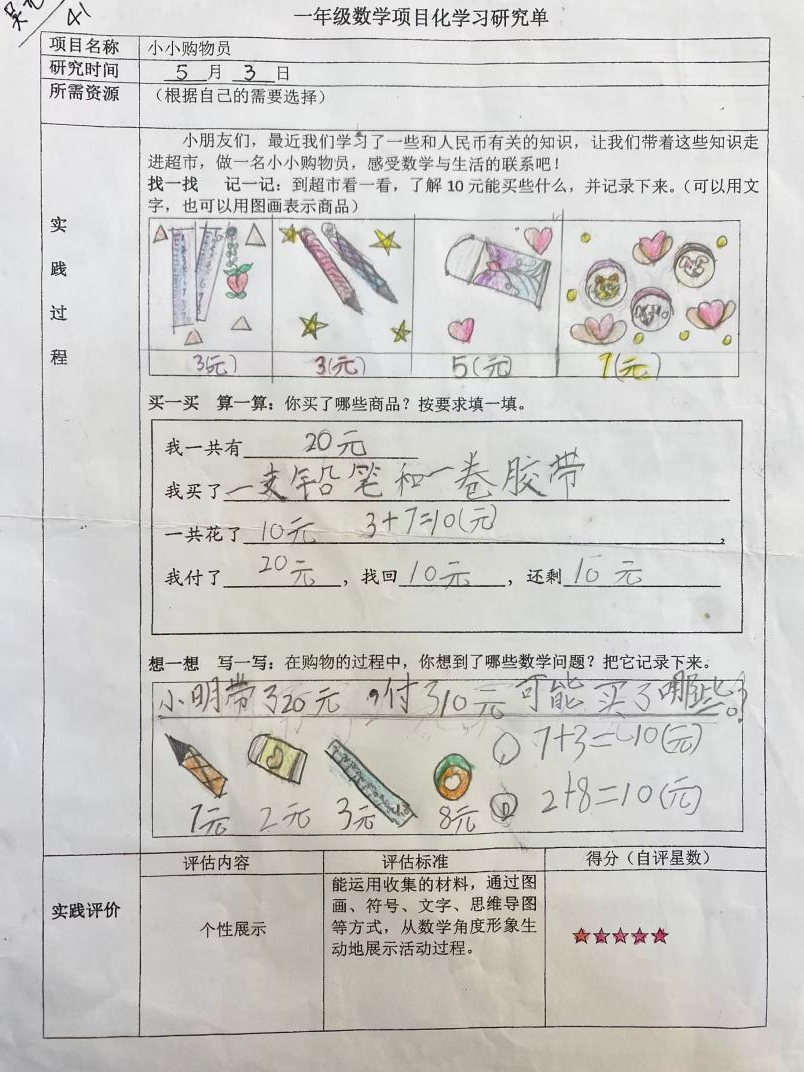 一年级数学项目化学习研究单
41
项目名称 小小购物员
研究时间 5 月 3 日
所需资源 (根据自己的需要选择)
实践过程
小朋友们，最近我们学习了一些和人民币有关的知识，让我们带着这些知识走
进超市，做一名小小购物员，感受数学与生活的联系吧！
找一找 记一记：到超市看一看，了解 10 元能买些什么，并记录下来。（可以用文
字，也可以用图画表示商品）
3(元) 3(元) 5(元) 7(元)
买一买 算一算：你买了哪些商品？按要求填一填。
我一共有 20元
我买了 一支铅笔和一卷胶带
一共花了 10元 3+7=10(元)
我付了 20元 ，找回 10元 ，还剩 10元
想一想 写一写：在购物的过程中，你想到了哪些数学问题？把它记录下来。
小明带了20元，付了10元可能买了哪些？
① 7+3=10(元)
7元 2元 3元 8元 ② 2+8=10(元)
评估内容 评估标准 得分（自评星数）
实践评价
个性展示
能运用收集的材料，通过图
画、符号、文字、思维导图
等方式，从数学角度形象生
动地展示活动过程。